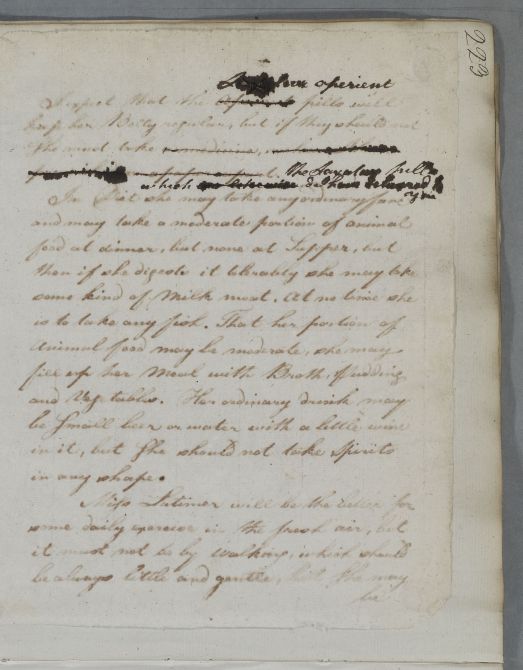 223
aperient
I expect that the pills will
keep her Belly regular, but if they should not
she must take
the laxative pills
which
In Diet she may take any ordinary fare
and may take a moderate portion of animal
food at dinner, but none at Supper, but
then if she digests it tolerably she may take
some kind of Milk meat. At no time she
is to take any fish. That her portion of
Animal food may be moderate, she may
fill up her Meal with Broth, Pudding
and Vegetables. Her ordinary drink may
be Small beer or water with a little wine
in it, but She should not take Spirits
in any shape.
Miss Latimer will be the better for
some daily exercise in the fresh air, but
it must not be by walking, which should
be always little and gentle, She may
be